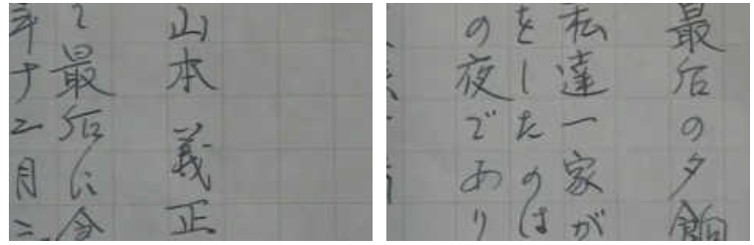 山本義正
て最后に会
年十二月二
最后の夕餉
私達一家が
をしたのは
の夜であり